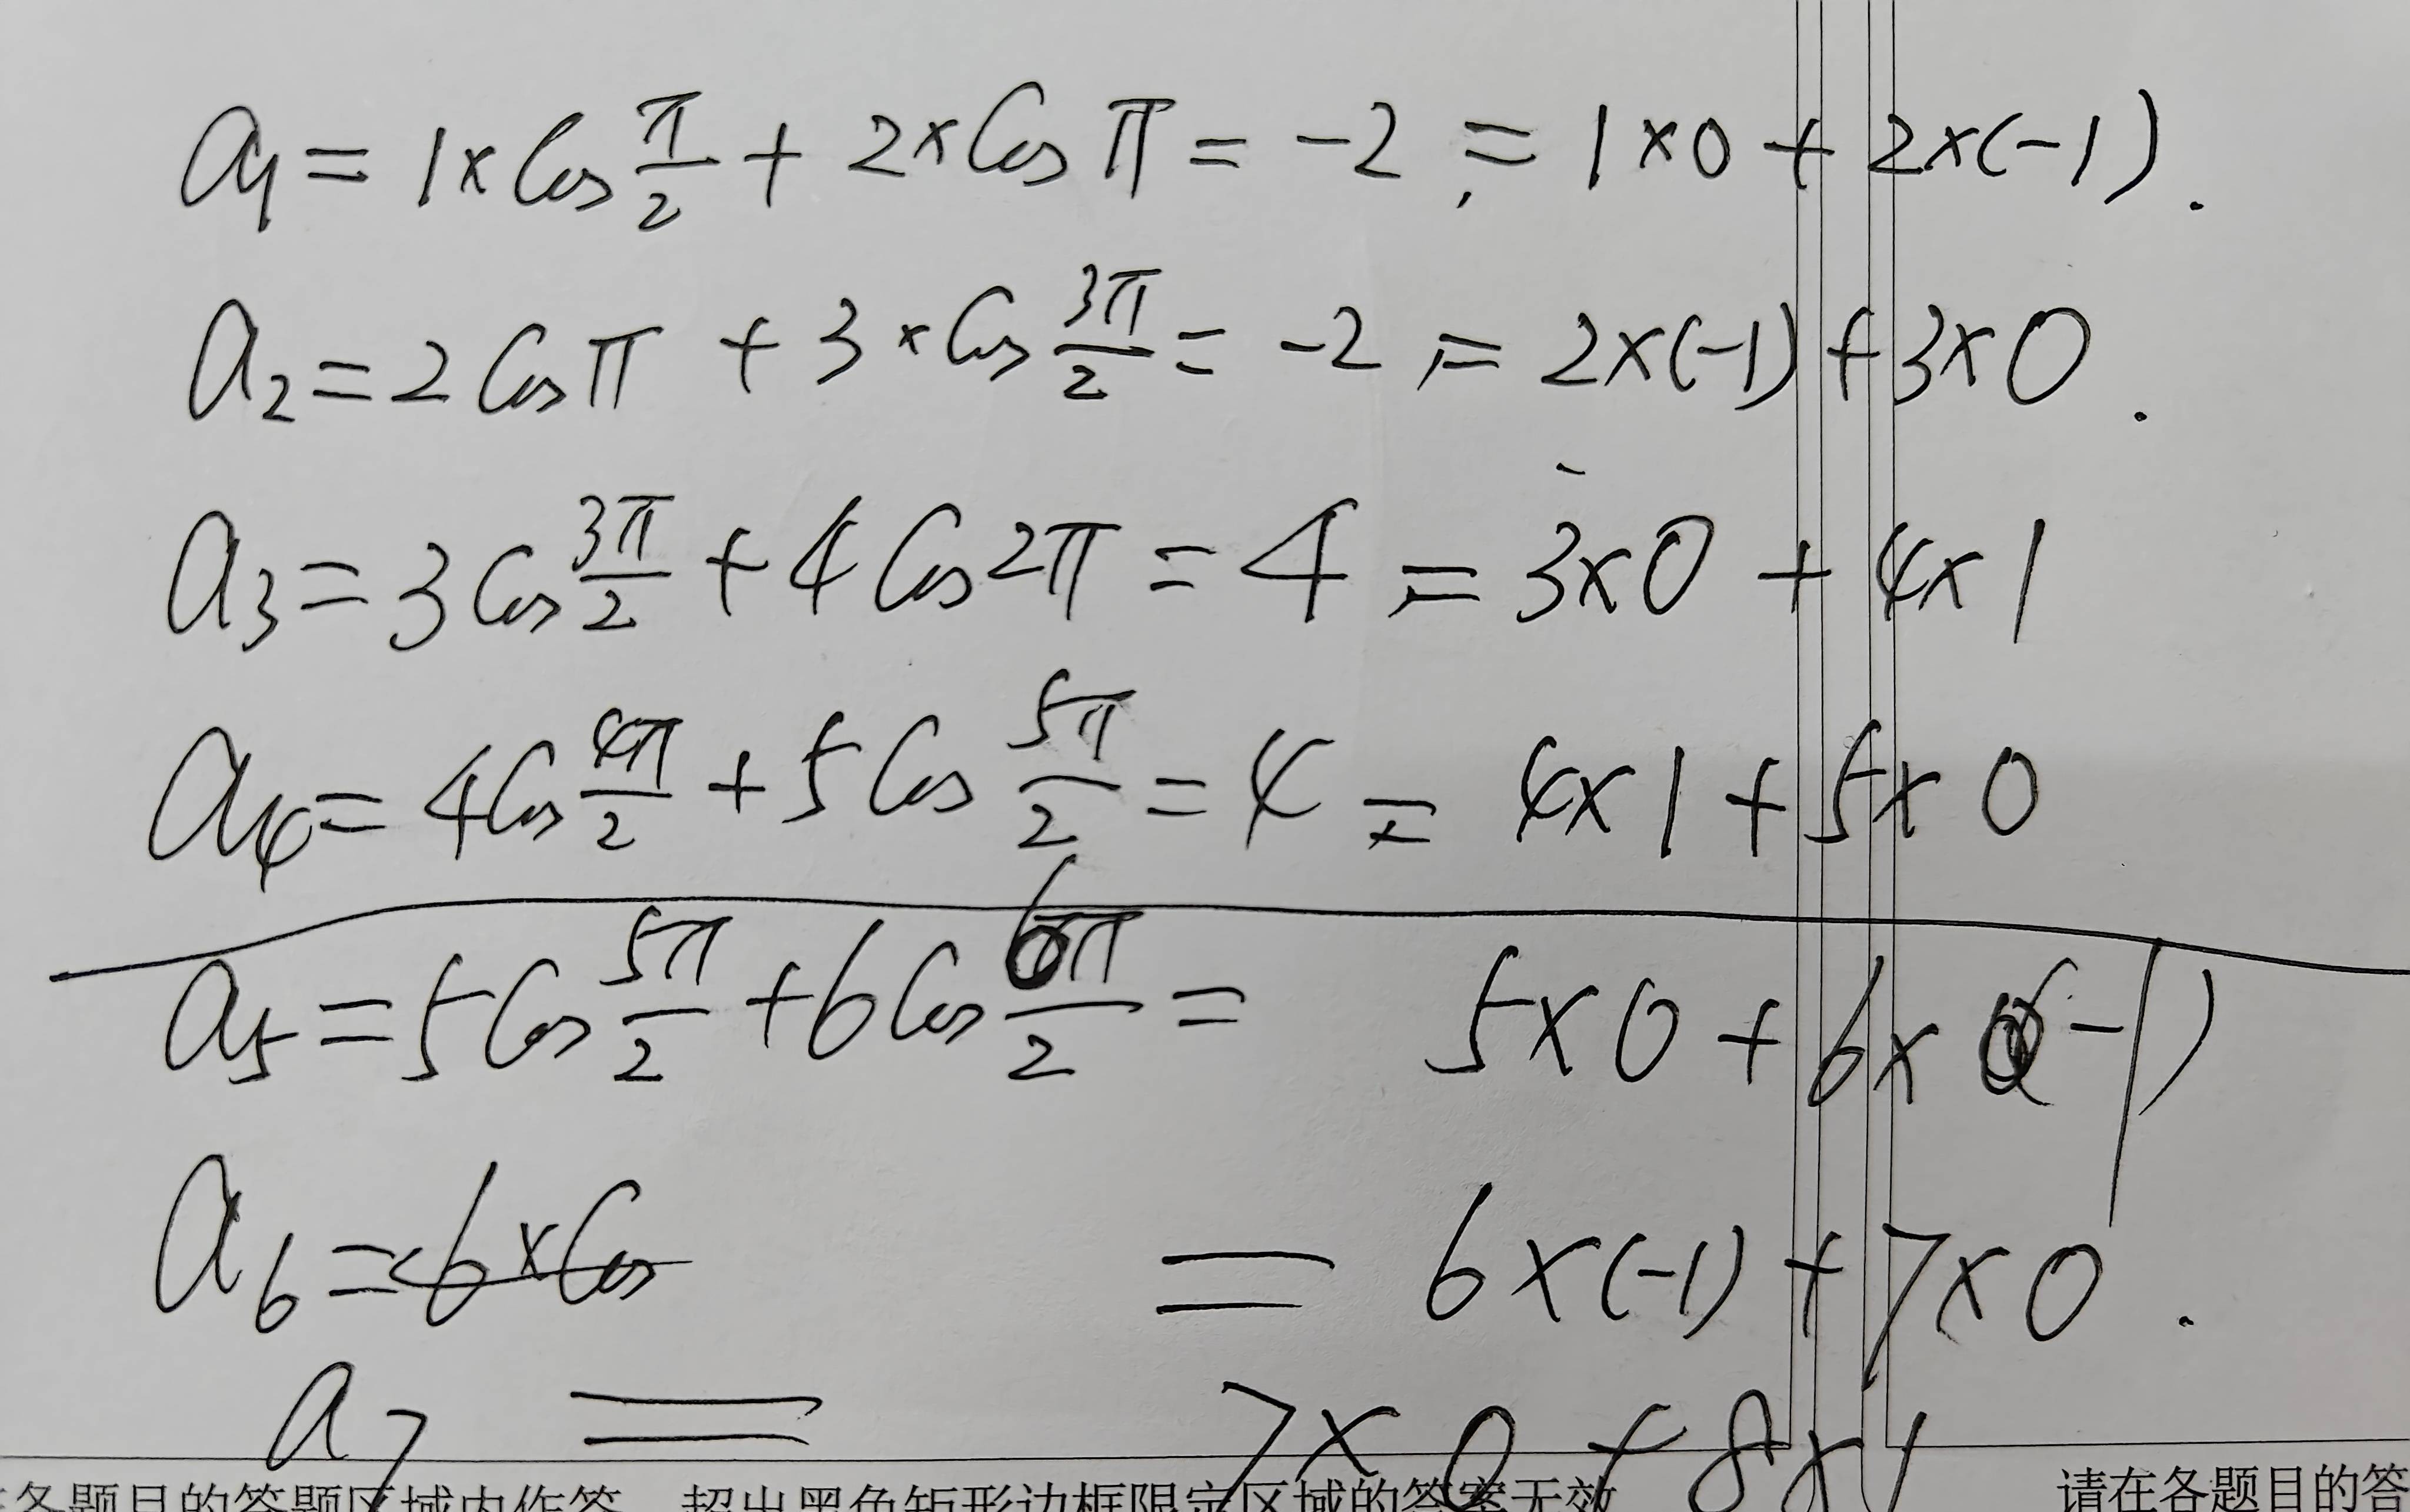 a₁ = 1×cos π/2 + 2×cos π = -2, = 1×0 + 2×(-1).
a₂ = 2cos π + 3×cos 3π/2 = -2, = 2×(-1) + 3×0.
a₃ = 3cos 3π/2 + 4cos 2π = 4 = 3×0 + 4×1
a₄ = 4cos 4π/2 + 5cos 5π/2 = 4 = 4×1 + 5×0
a₅ = 5cos 5π/2 + 6cos 6π/2 = 5×0 + 6×(-1)
a₆ = 6×cos = 6×(-1) + 7×0.
a₇ = 7×0 + 8×1
各题目的答题区域内作答，超出黑色矩形边框限定区域的答案无效
请在各题目的答